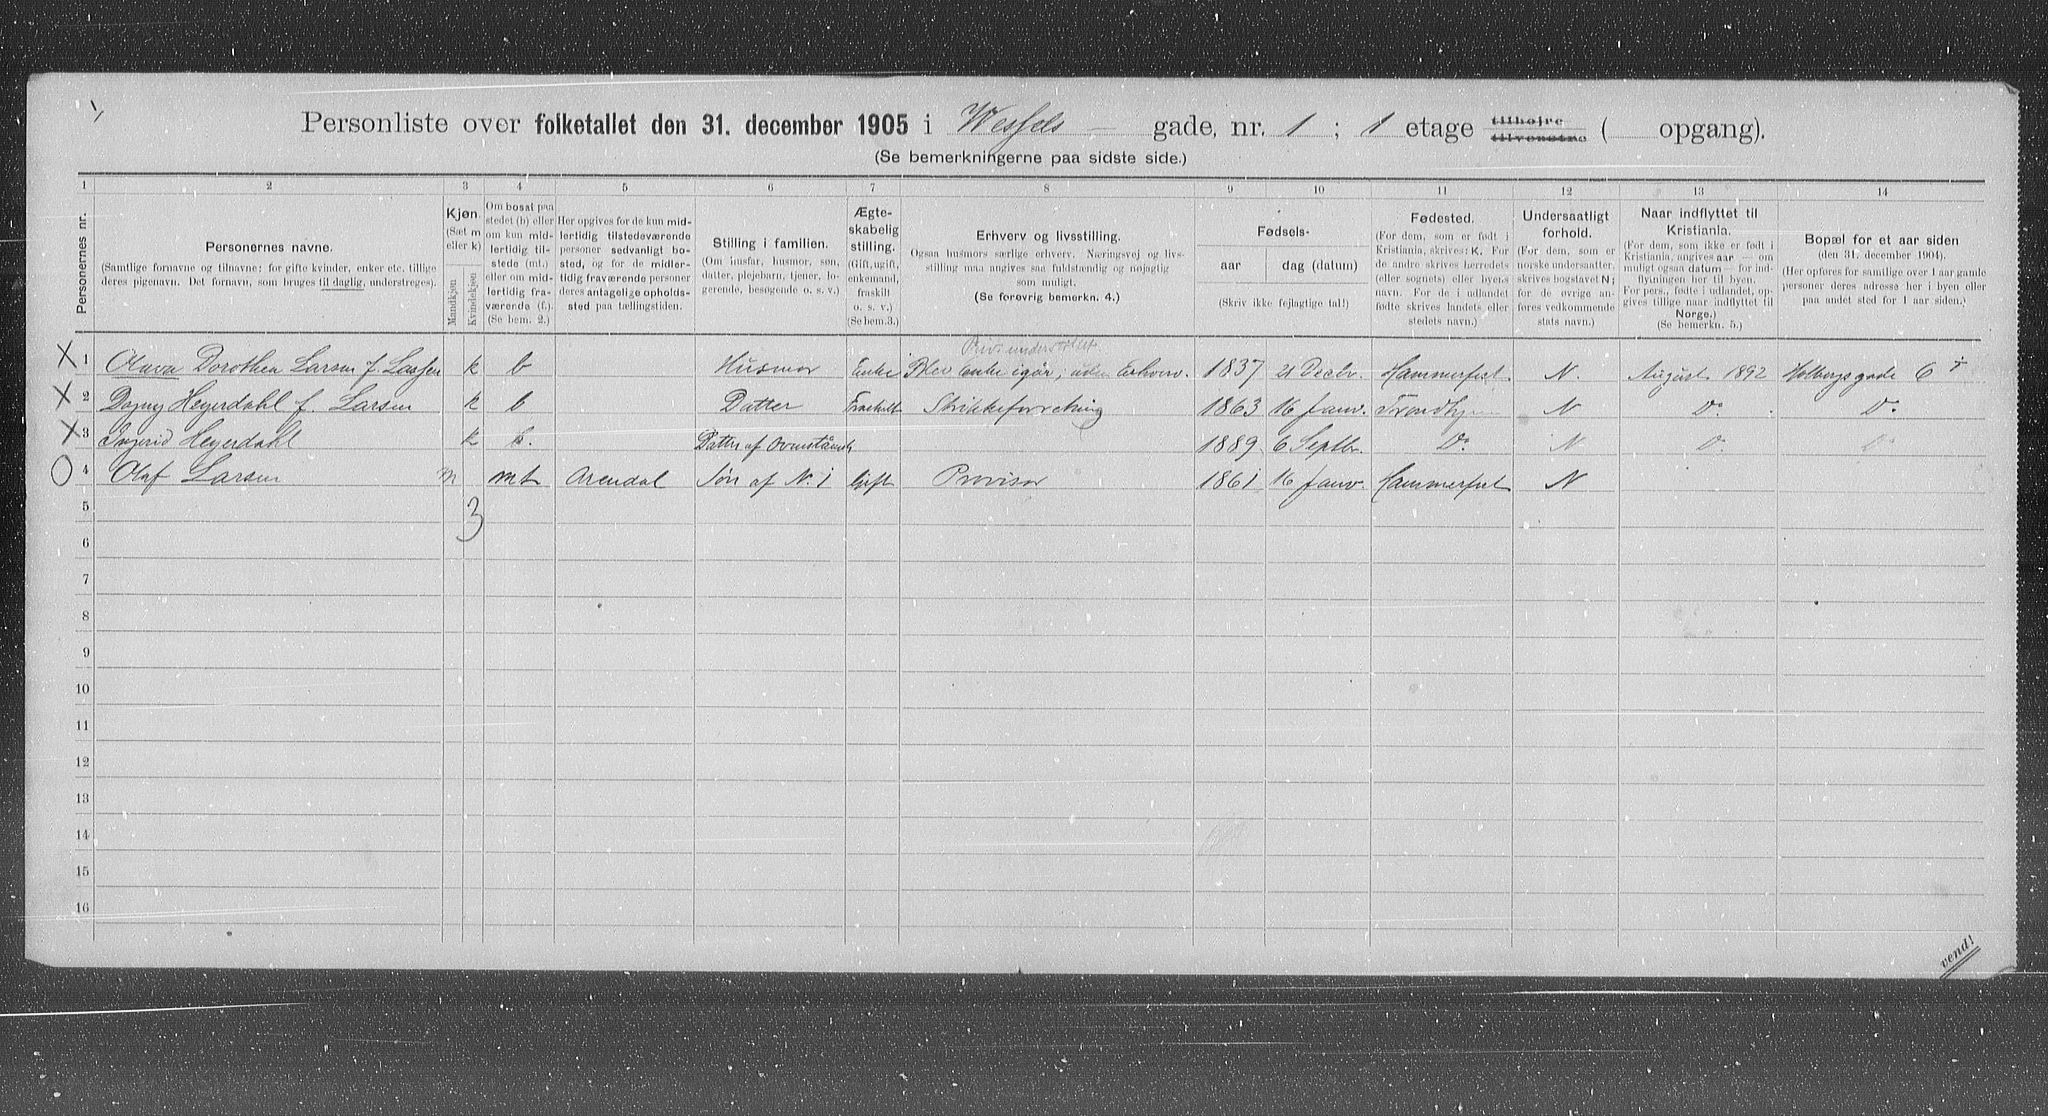 Personliste over folketallet den 31. december 1905 i Wessels - gade, nr. 1 ; 1 etage tilhøjre tilvenstre ( opgang).
(Se bemerkningerne paa sidste side.)
1 2 3 4 5 6 7 8 9 10 11 12 13 14
Personernes nr.
Personernes navne.
(Samtlige fornavne og tilnavne; for gifte kvinder, enker etc. tillige
deres pigenavn. Det fornavn, som bruges til daglig, understreges).
Kjøn.
(Sæt m
eller k)
Mandkjøn
Kvindekjøn
Om bosat paa
stedet (b) eller
om kun mid-
lertidig til-
stede (mt.)
eller om mid-
lertidig fra-
værende (f.).
(Se bem. 2.)
Her opgives for de kun mid-
lertidig tilstedeværende
personer sedvanligt bo-
sted, og for de midler-
tidig fraværende personer
deres antagelige opholds-
sted paa tællingstiden.
Stilling i familien.
(Om husfar, husmor, søn,
datter, plejebarn, tjener, lo-
gerende, besøgende o. s. v.)
Ægte-
skabelig
stilling.
(Gift, ugift,
enkemand,
fraskilt
o. s. v.)
(Se bem.3.)
Erhverv og livsstilling.
Ogsaa husmors særlige erhverv. Næringsvej og livs-
stilling maa angives saa fuldstændig og nøjagtig
som muligt.
(Se forøvrig bemerkn. 4.)
Fødsels-
aar
dag (datum)
(Skriv ikke fejlagtige tal!)
Fødested.
(For dem, som er født i
Kristiania, skrives: K. For
de andre skrives herredets
(eller sognets) eller byens
navn. For de i udlandet
fødte skrives landets eller
stedets navn.)
Undersaatligt
forhold.
(For dem, som er
norske undersaatter,
skrives bogstavet N;
for de øvrige an-
føres vedkommende
stats navn.)
Naar indflyttet til
Kristiania.
(For dem, som ikke er født i
Kristiania, angives aar — om
muligt ogsaa datum — for ind-
flytningen her til byen.
For pers., fødte i udlandet, op-
gives tillige naar indflyttet til
Norge.)
(Se bemerkn. 5.)
Bopæl for et aar siden
(den 31. december 1904).
(Her opføres for samtlige over 1 aar gamle
personer deres adresse her i byen eller
paa andet sted for 1 aar siden.)
Privat understøttet
X 1 Olava Dorothea Larsen f. Lassen k b Husmor Enke Blev Enke igår; uden Erhverv. 1837 21 Decbr. Hammerfest N. August 1892 Holbergsgade 6
X 2 Dagny Heyerdahl f. Larsen k b Datter Fraskilt Strikkeforretning 1863 16 Janv. Trondhjem N Do. Do.
X 3 Ingrid Heyerdahl k b. Datter af Ovenstående 1889 6 Septbr. Do. N Do. Do.
O 4 Olaf Larsen m mt Arendal Søn af N. 1 Gift Provisor 1861 16 Janv. Hammerfest N
5 3
6
7
8
9
10
11
12
13
14
15
16
vend!